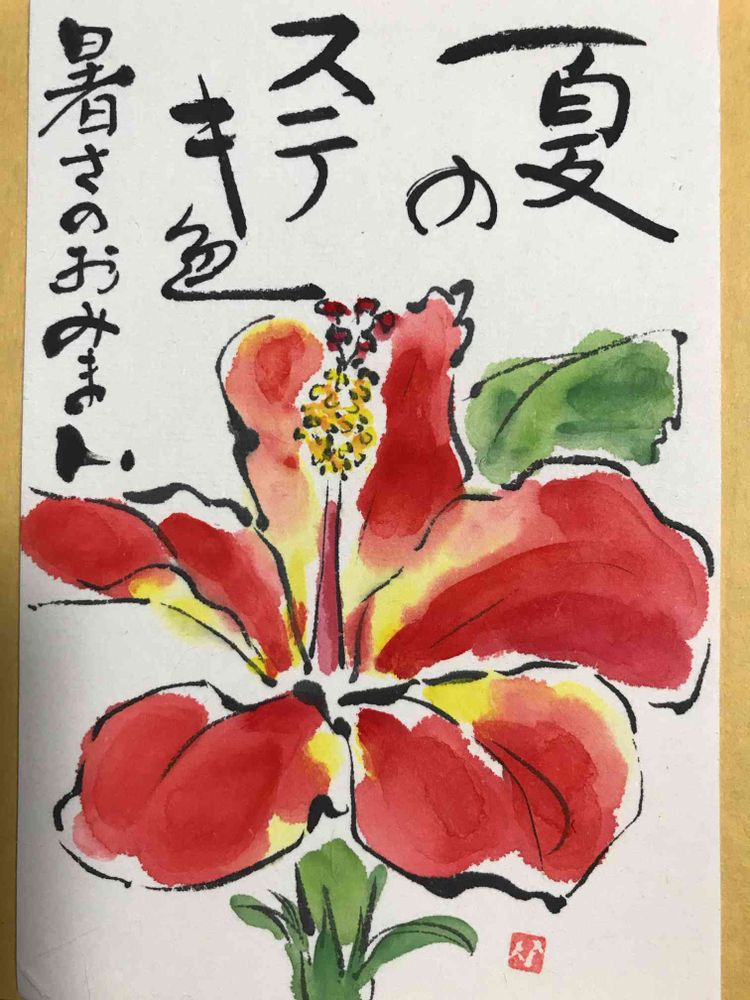 夏
の
ステ
キ
色
暑さのおみまい